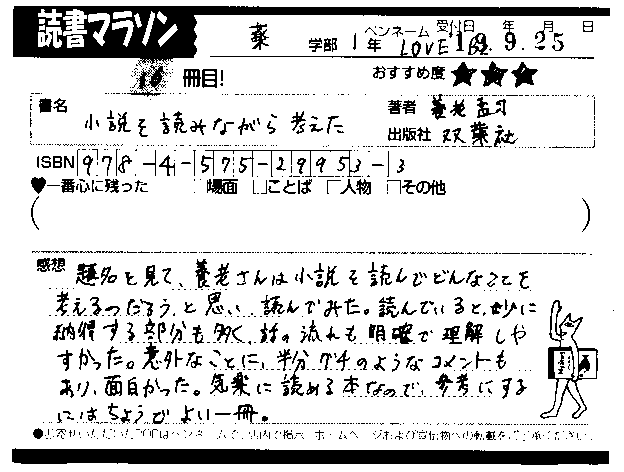 読書マラソン
薬 学部 1年 ペンネーム LOVE 受付日 年 月 日 19.9.25
冊目! おすすめ度 ★★★
書名 小説を読みながら考えた 著者 養老孟司
出版社 双葉社
ISBN 978-4-575-29953-3
♥一番心に残った □場面 □ことば □人物 □その他
感想 題名を見て、養老さんは小説を読んでどんなことを
考えるのだろう、と思い、読んでみた。読んでいると、妙に
納得する部分も多く、話の流れも明確で理解しや
すかった。意外なことに、半分グチのようなコメントも
あり、面白かった。気楽に読める本なので、参考にする
にはちょうどよい一冊。
●お寄せいただいたPOPはペンネームで、店内で掲示・ホームページおよび宣伝物への転載をご了承ください。